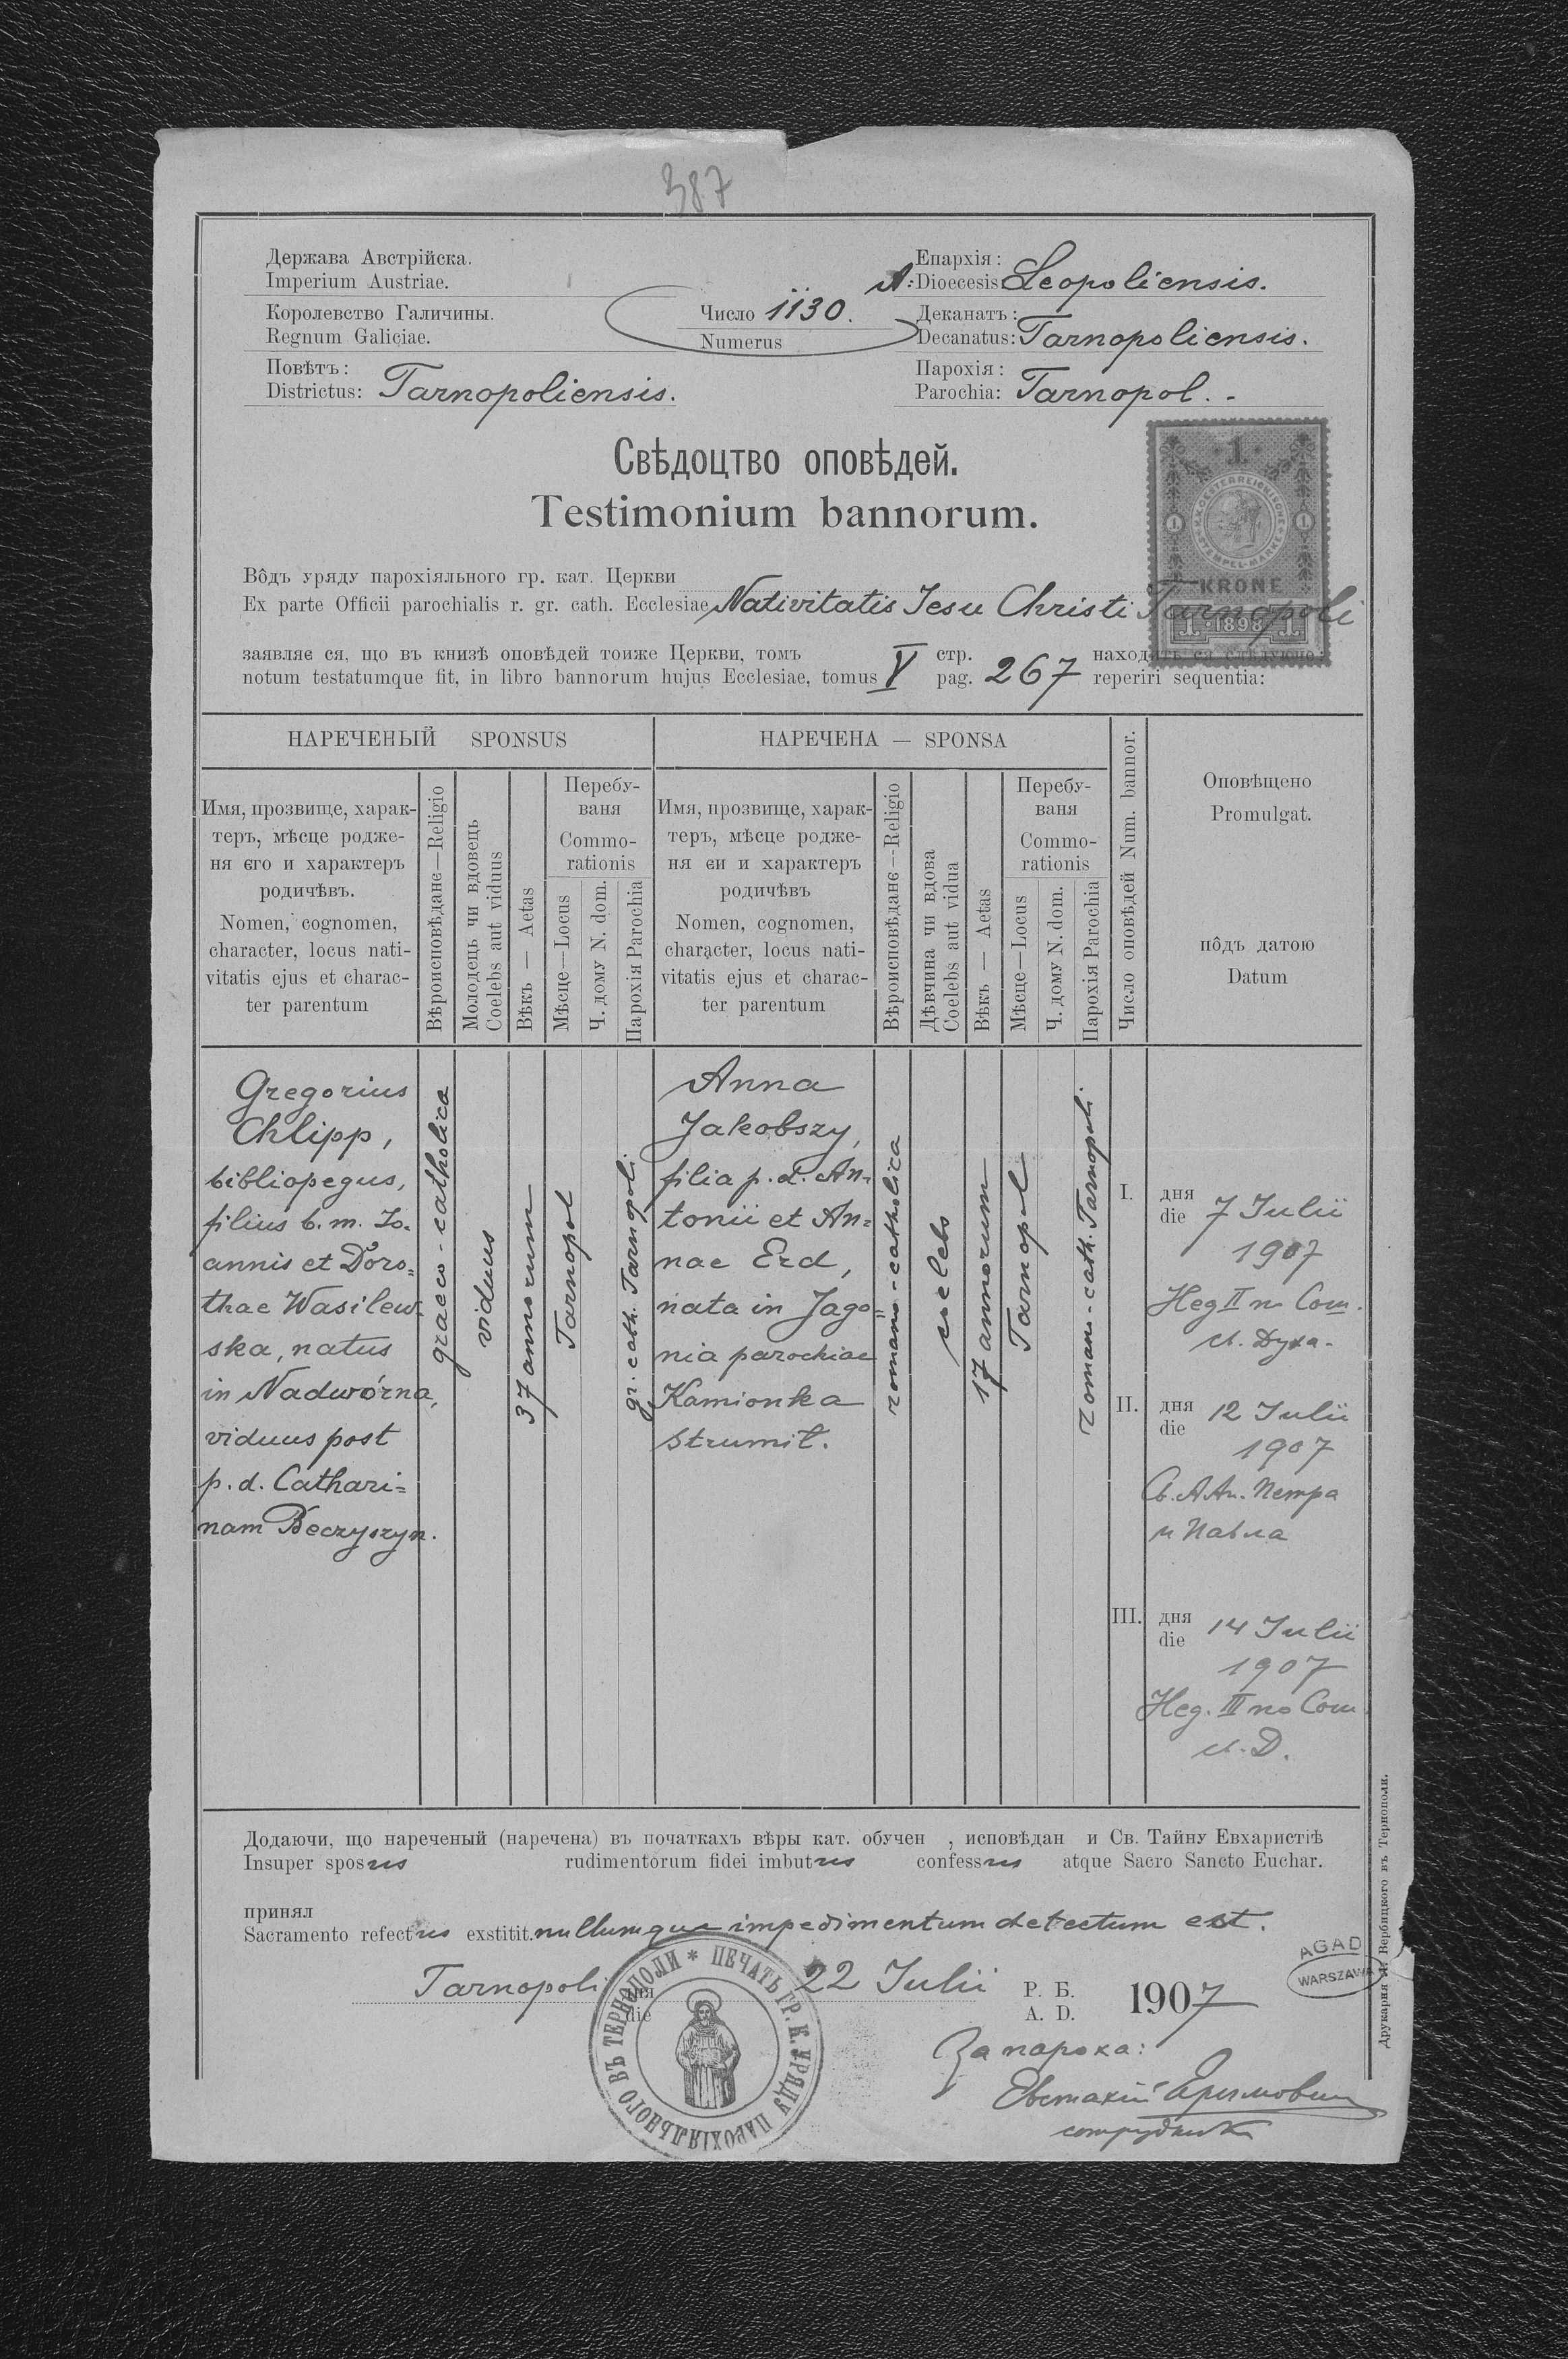 387
Держава Австрійска.
Imperium Austriae.
Королевство Галичины.
Regnum Galiciae.
Повѣтъ:
Districtus: Tarnopoliensis.
Число 1130.
Numerus
Епархія:
A: Dioecesis: Leopoliensis.
Деканатъ:
Decanatus: Tarnopoliensis.
Парохія:
Parochia: Tarnopol. -
Свѣдоцтво оповѣдей.
Testimonium bannorum.
1
K.K. OESTERREICHISCHE STEMPEL-MARKE
1 1
KRONE
1 · 1898 · 1
Вôдъ уряду парохіяльного гр. кат. Церкви
Ex parte Officii parochialis r. gr. cath. Ecclesiae Nativitatis Iesu Christi Tarnopoli
заявляє ся, що въ книзѣ оповѣдей тоиже Церкви, томъ стр. находитъ ся слѣдующе:
notum testatumque fit, in libro bannorum hujus Ecclesiae, tomus V pag. 267 reperiri sequentia:
НАРЕЧЕНЫЙ SPONSUS
НАРЕЧЕНА — SPONSA
Имя, прозвище, харак-
теръ, мѣсце родже-
ня єго и характеръ
родичѣвъ.
Nomen, cognomen,
character, locus nati-
vitatis ejus et charac-
ter parentum
Вѣроисповѣданє—Religio
Молодець чи вдовець
Coelebs aut viduus
Вѣкъ — Aetas
Перебу-
ваня
Commo-
rationis
Мѣсце—Locus
Ч. дому N. dom.
Парохія Parochia
Имя, прозвище, харак-
теръ, мѣсце родже-
ня єи и характеръ
родичѣвъ
Nomen, cognomen,
character, locus nati-
vitatis ejus et charac-
ter parentum
Вѣроисповѣданє—Religio
Дѣвчина чи вдова
Coelebs aut vidua
Вѣкъ — Aetas
Перебу-
ваня
Commo-
rationis
Мѣсце—Locus
Ч. дому N. dom.
Парохія Parochia
Число оповѣдей Num. bannor.
Оповѣщено
Promulgat.
пôдъ датою
Datum
Gregorius
Chlipp,
bibliopegus,
filius b. m. Io-
annis et Doro=
thae Wasilew-
ska, natus
in Nadwórna,
viduus post
p. d. Cathari=
nam Beczyszyn.
graeco-catholica
viduus
37 annorum
Tarnopol
gr. cath. Tarnopoli
Anna
Jakobszy,
filia p. d. An=
tonii et An=
nae Erd,
nata in Jago=
nia parochiae
Kamionka
Strumił.
romano-catholica
coelebs
17 annorum
Tarnopol
romano-cath. Tarnopoli.
I. дня
die 7 Iulii
1907
Нед II по Сош.
св. Духа.
II. дня
die 12 Iulii
1907
Св. А Ап. Петра
и Павла
III. дня
die 14 Iulii
1907
Нед. III по Сош
св. Д.
Додаючи, що нареченый (наречена) въ початкахъ вѣры кат. обучен , исповѣдан и Св. Тайну Евхаристіѣ
Insuper sposus rudimentorum fidei imbutus confessus atque Sacro Sancto Euchar.
принял
Sacramento refectus exstitit. nullumque impedimentum detectum est.
Tarnopoli дня
die 22 Iulii Р. Б.
A. D. 1907
ПЕЧАТЬ ГР. К. УРЯДУ ПАРОХІЯЛЬНОГО ВЪ ТЕРНОПОЛИ *
За пароха:
Евстахій
сотрудникъ
AGAD
WARSZAWA
Друкарня Вербицкого въ Тернополи.